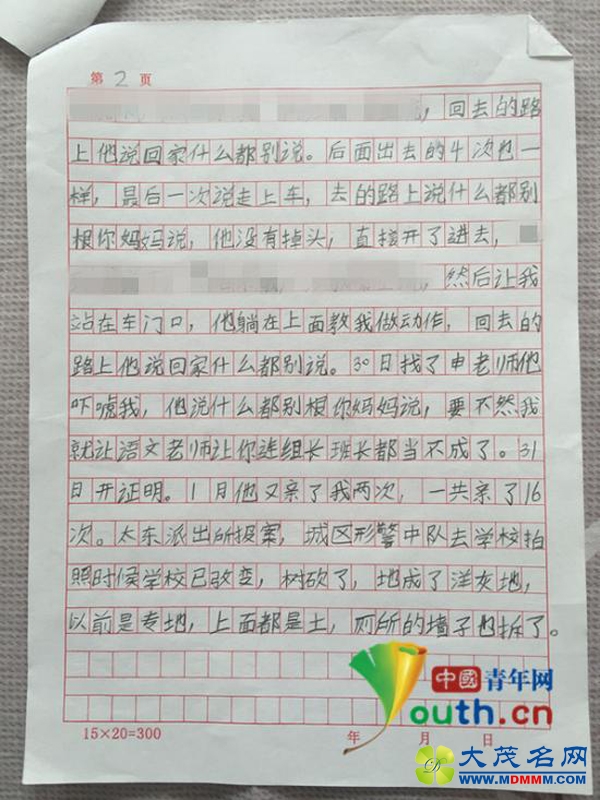 第 2 页
，回去的路
上他说回家什么都别说。后面出去的4次也一
样，最后一次说走上车，去的路上说什么都别
根你妈妈说，他没有掉头，直接开了进去，
，然后让我
站在车门口，他躺在上面教我做动作，回去的
路上他说回家什么都别说。30日找了申老师他
吓唬我，他说什么都别根你妈妈说，要不然我
就让语文老师让你连组长班长都当不成了。31
日开证明。1月他又亲了我两次，一共亲了16
次。太东派出所报案，城区形警中队去学校拍
照时候学校已改变，树砍了，地成了洋灰地，
以前是专地，上面都是土，厕所的墙子也拆了。
15×20=300 年 月 日
中國青年网
Youth.cn
大茂名网
WWW.MDMMM.COM